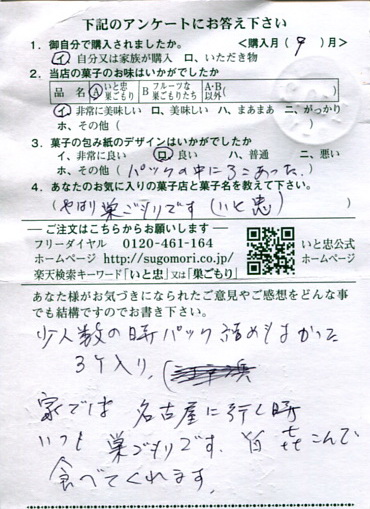 下記のアンケートにお答え下さい
1．御自分で購入されましたか。 <購入月(9)月>
イ、自分又は家族が購入 ロ、いただき物
2．当店の菓子のお味はいかがでしたか
品 名 A いと忠巣ごもり B フルーツな巣ごもりたち A・B以外( )
イ、非常に美味しい ロ、美味しい ハ、まあまあ ニ、がっかり
ホ、その他( )
3．菓子の包み紙のデザインはいかがでしたか
イ、非常に良い ロ、良い ハ、普通 ニ、悪い
ホ、その他(パックの中に3こあった.)
4．あなたのお気に入りの菓子店と菓子名を教えて下さい。
(やはり巣ごもりです(いと忠) )
ご注文はこちらからお願いします
フリーダイヤル 0120-461-164
ホームページ http://sugomori.co.jp/
楽天検索キーワード「いと忠」又は「巣ごもり」
いと忠公式
ホームページ
あなた様がお気づきになられたご意見やご感想をどんな事
でも結構ですのでお書き下さい。
少人数の時パック詰めもよかった
3ケ入り.
家では 名古屋に行く時
いつも 巣ごもりです. 皆 喜こんで
食べてくれます.